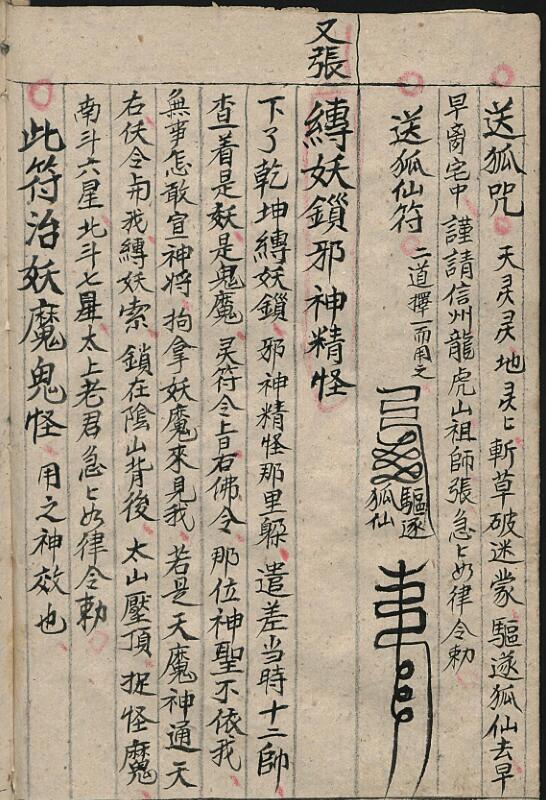 送狐咒 天灵灵地灵〻斬草破迷蒙驅逐狐仙去早
早离宅中謹請信州龍虎山祖師張急〻如律令勅
送狐仙符 二道擇一而用之
驅逐
狐仙
又張
縛妖鎖邪神精怪
下了乾坤縛妖鎖邪神精怪那里躲遣差当時十二帥
查一着是妖是鬼魔灵符令上曰右佛令那位神聖不依我
無事怎敢宣神將拘拿妖魔來見我若是天魔神通天
右伏令与我縛妖索鎖在陰山背後太山壓頂捉怪魔
南斗六星北斗七星太上老君急〻如律令勅
此符治妖魔鬼怪 用之神效也